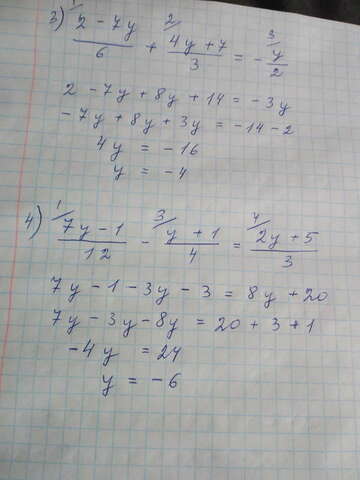 3) 1/ (2 - 7y)/6 + 2/ (4y + 7)/3 = - 3/ y/2
2 - 7y + 8y + 14 = -3y
-7y + 8y + 3y = -14 - 2
4y = -16
y = -4
4) 1/ (7y - 1)/12 - 3/ (y + 1)/4 = 4/ (2y + 5)/3
7y - 1 - 3y - 3 = 8y + 20
7y - 3y - 8y = 20 + 3 + 1
-4y = 24
y = -6